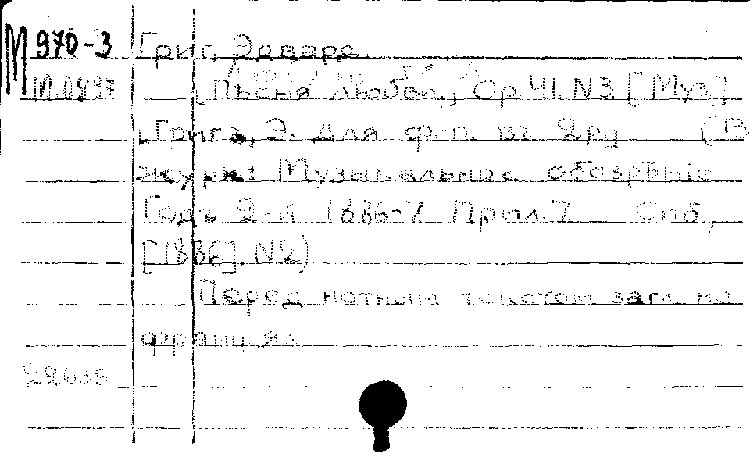 М 970-3 Григ, Эдвард.
[Песня любви], Op. 41. N3 [Муз]
Григъ, Э. Для ф-п. въ 2 ру (В
журн: Музыкальное обозрѣніе
Годъ 2-й 1886-7 Прил. 7 Спб.,
[1886]. N2)
Перед нотным текстом загл. на
француз яз.